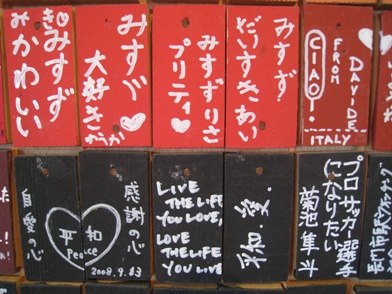 みすず
かわいい
みすゞ
大好き
みすずりさ
プリティ
みすず
だいすき
CIAO!
FROM
DAVIDE
ITALY
自愛の心
平和
Peace
感謝の心
2008.9.13
LIVE
THE LIFE
YOU LOVE,
LOVE
THE LIFE
YOU LIVE
プロサッカー選手
になりたい
菊池隼斗